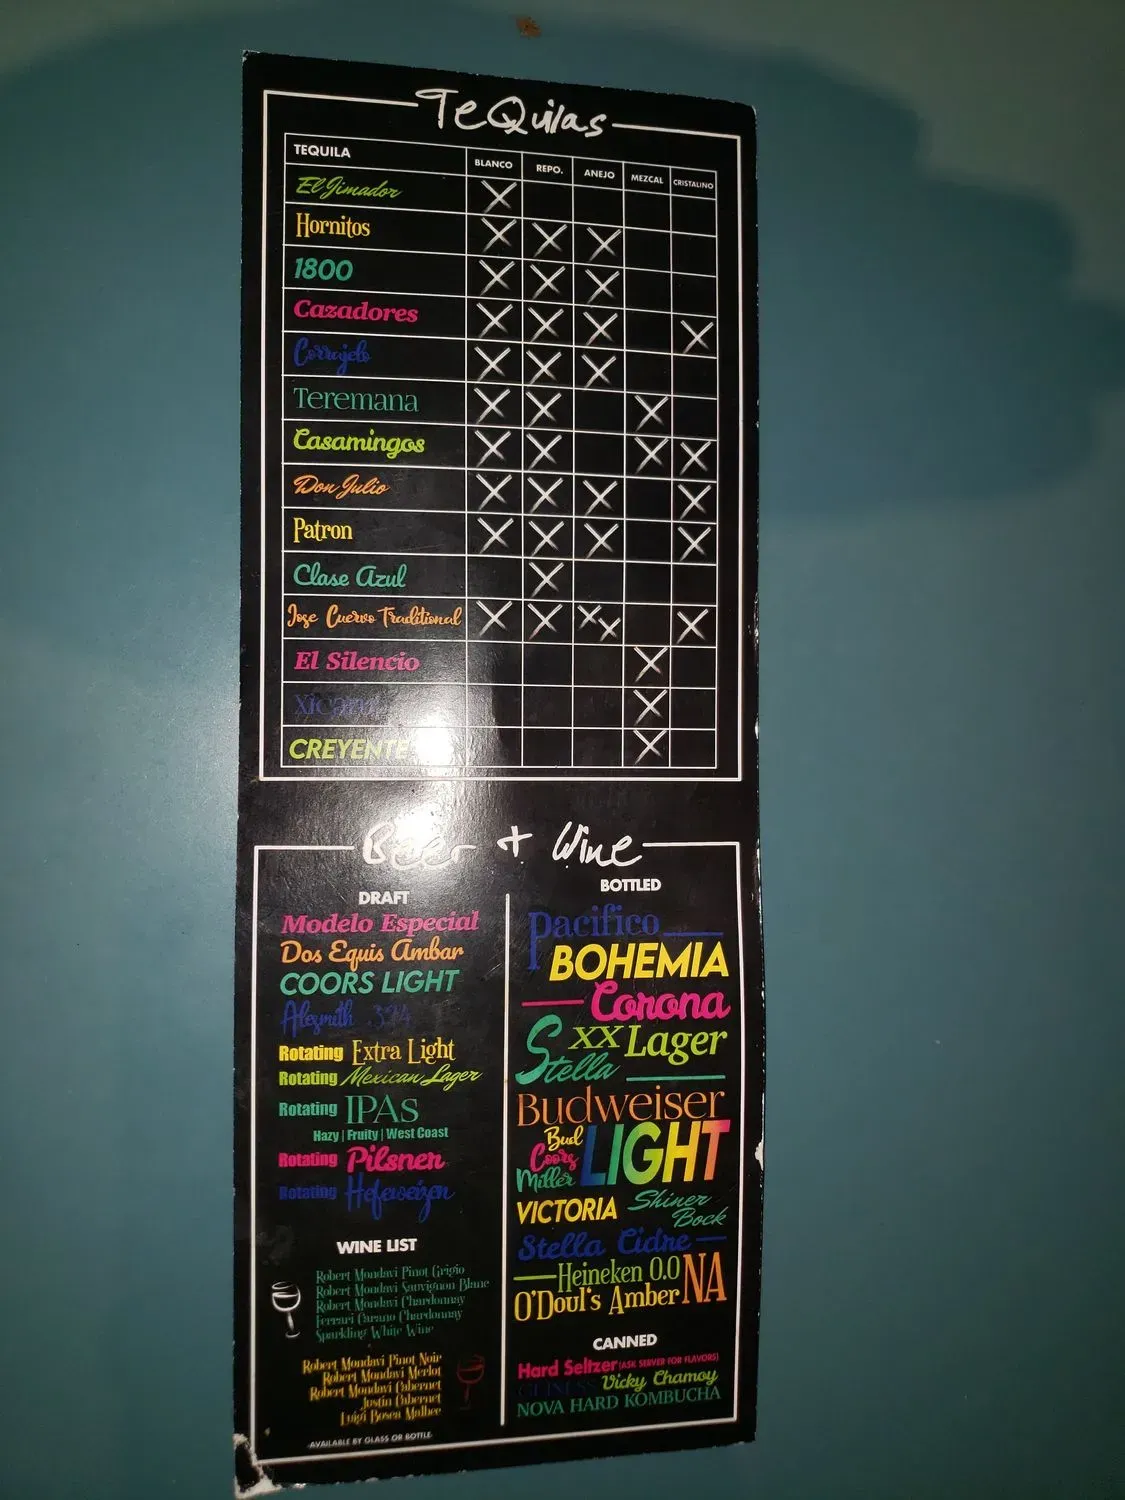 TeQuilas
TEQUILA BLANCO REPO. ANEJO MEZCAL CRISTALINO
El Jimador X
Hornitos X X X
1800 X X X
Cazadores X X X X
Corrajelo X X X
Teremana X X X
Casamingos X X X X
Don Julio X X X X
Patron X X X X
Clase Azul X
Jose Cuervo Traditional X X X X X
El Silencio X
X
CREYENTE X
Beer + Wine
DRAFT
Modelo Especial
Dos Equis Ambar
COORS LIGHT
Alesmith 394
Rotating Extra Light
Rotating Mexican Lager
Rotating IPAs
Hazy | Fruity | West Coast
Rotating Pilsner
Rotating Hefeweizen
WINE LIST
Robert Mondavi Pinot Grigio
Robert Mondavi Sauvignon Blanc
Robert Mondavi Chardonnay
Ferrari Carano Chardonnay
Sparkling White Wine
Robert Mondavi Pinot Noir
Robert Mondavi Merlot
Robert Mondavi Cabernet
Justin Cabernet
Luigi Bosca Malbec
AVAILABLE BY GLASS OR BOTTLE
BOTTLED
Pacifico
BOHEMIA
Corona
XX Lager
Stella
Budweiser
Bud
Coors
Miller
LIGHT
VICTORIA
Shiner
Bock
Stella Cidre
Heineken 0.0
O'Doul's Amber
NA
CANNED
Hard Seltzer (ASK SERVER FOR FLAVORS)
GUINESS Vicky Chamoy
NOVA HARD KOMBUCHA